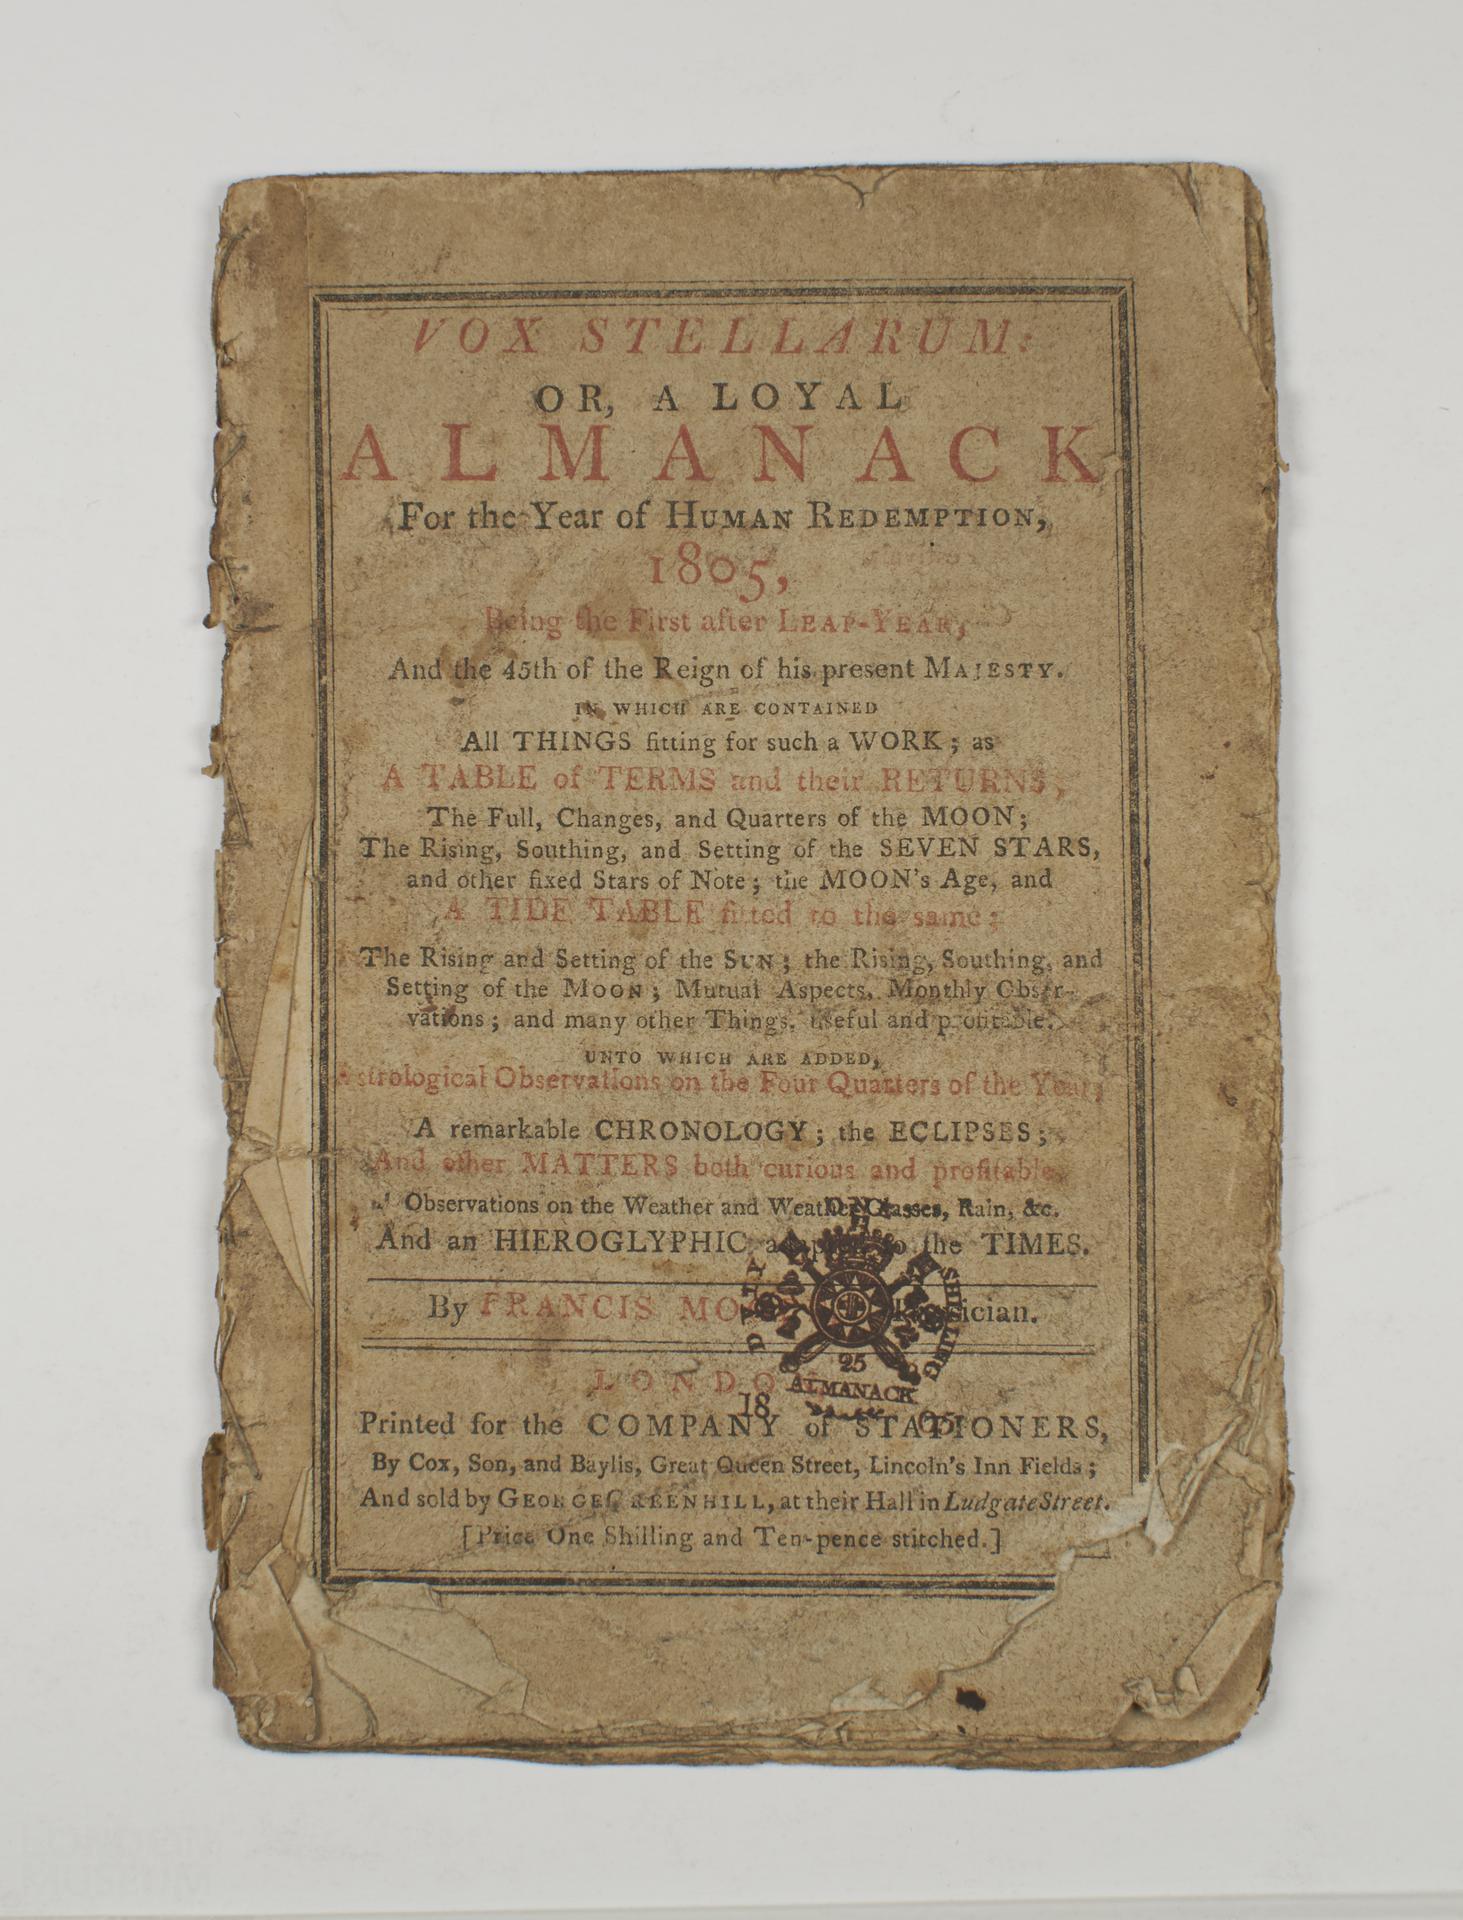 VOX STELLARUM:
OR, A LOYAL
ALMANACK
For the Year of HUMAN REDEMPTION,
1805,
Being the First after LEAP-YEAR,
And the 45th of the Reign of his present MAJESTY.
IN WHICH ARE CONTAINED
All THINGS fitting for such a WORK; as
A TABLE of TERMS and their RETURNS,
The Full, Changes, and Quarters of the MOON;
The Rising, Southing, and Setting of the SEVEN STARS,
and other fixed Stars of Note; the MOON's Age, and
A TIDE TABLE fitted to the same;
The Rising and Setting of the SUN; the Rising, Southing, and
Setting of the MOON; Mutual Aspects, Monthly Obser-
vations; and many other Things, useful and profitable.
UNTO WHICH ARE ADDED,
Astrological Observations on the Four Quarters of the Year;
A remarkable CHRONOLOGY; the ECLIPSES;
And other MATTERS both curious and profitable
Observations on the Weather and Weather Glasses, Rain, &c.
And an HIEROGLYPHIC adapted to the TIMES.
By FRANCIS MOORE, Physician.
DUTY
ONE
SHILLING
25
ALMANACK
18 05
LONDON
Printed for the COMPANY of STATIONERS,
By Cox, Son, and Baylis, Great Queen Street, Lincoln's Inn Fields;
And sold by GEORGE GREENHILL, at their Hall in Ludgate Street.
[Price One Shilling and Ten-pence stitched.]
LONDON
MUSEUM